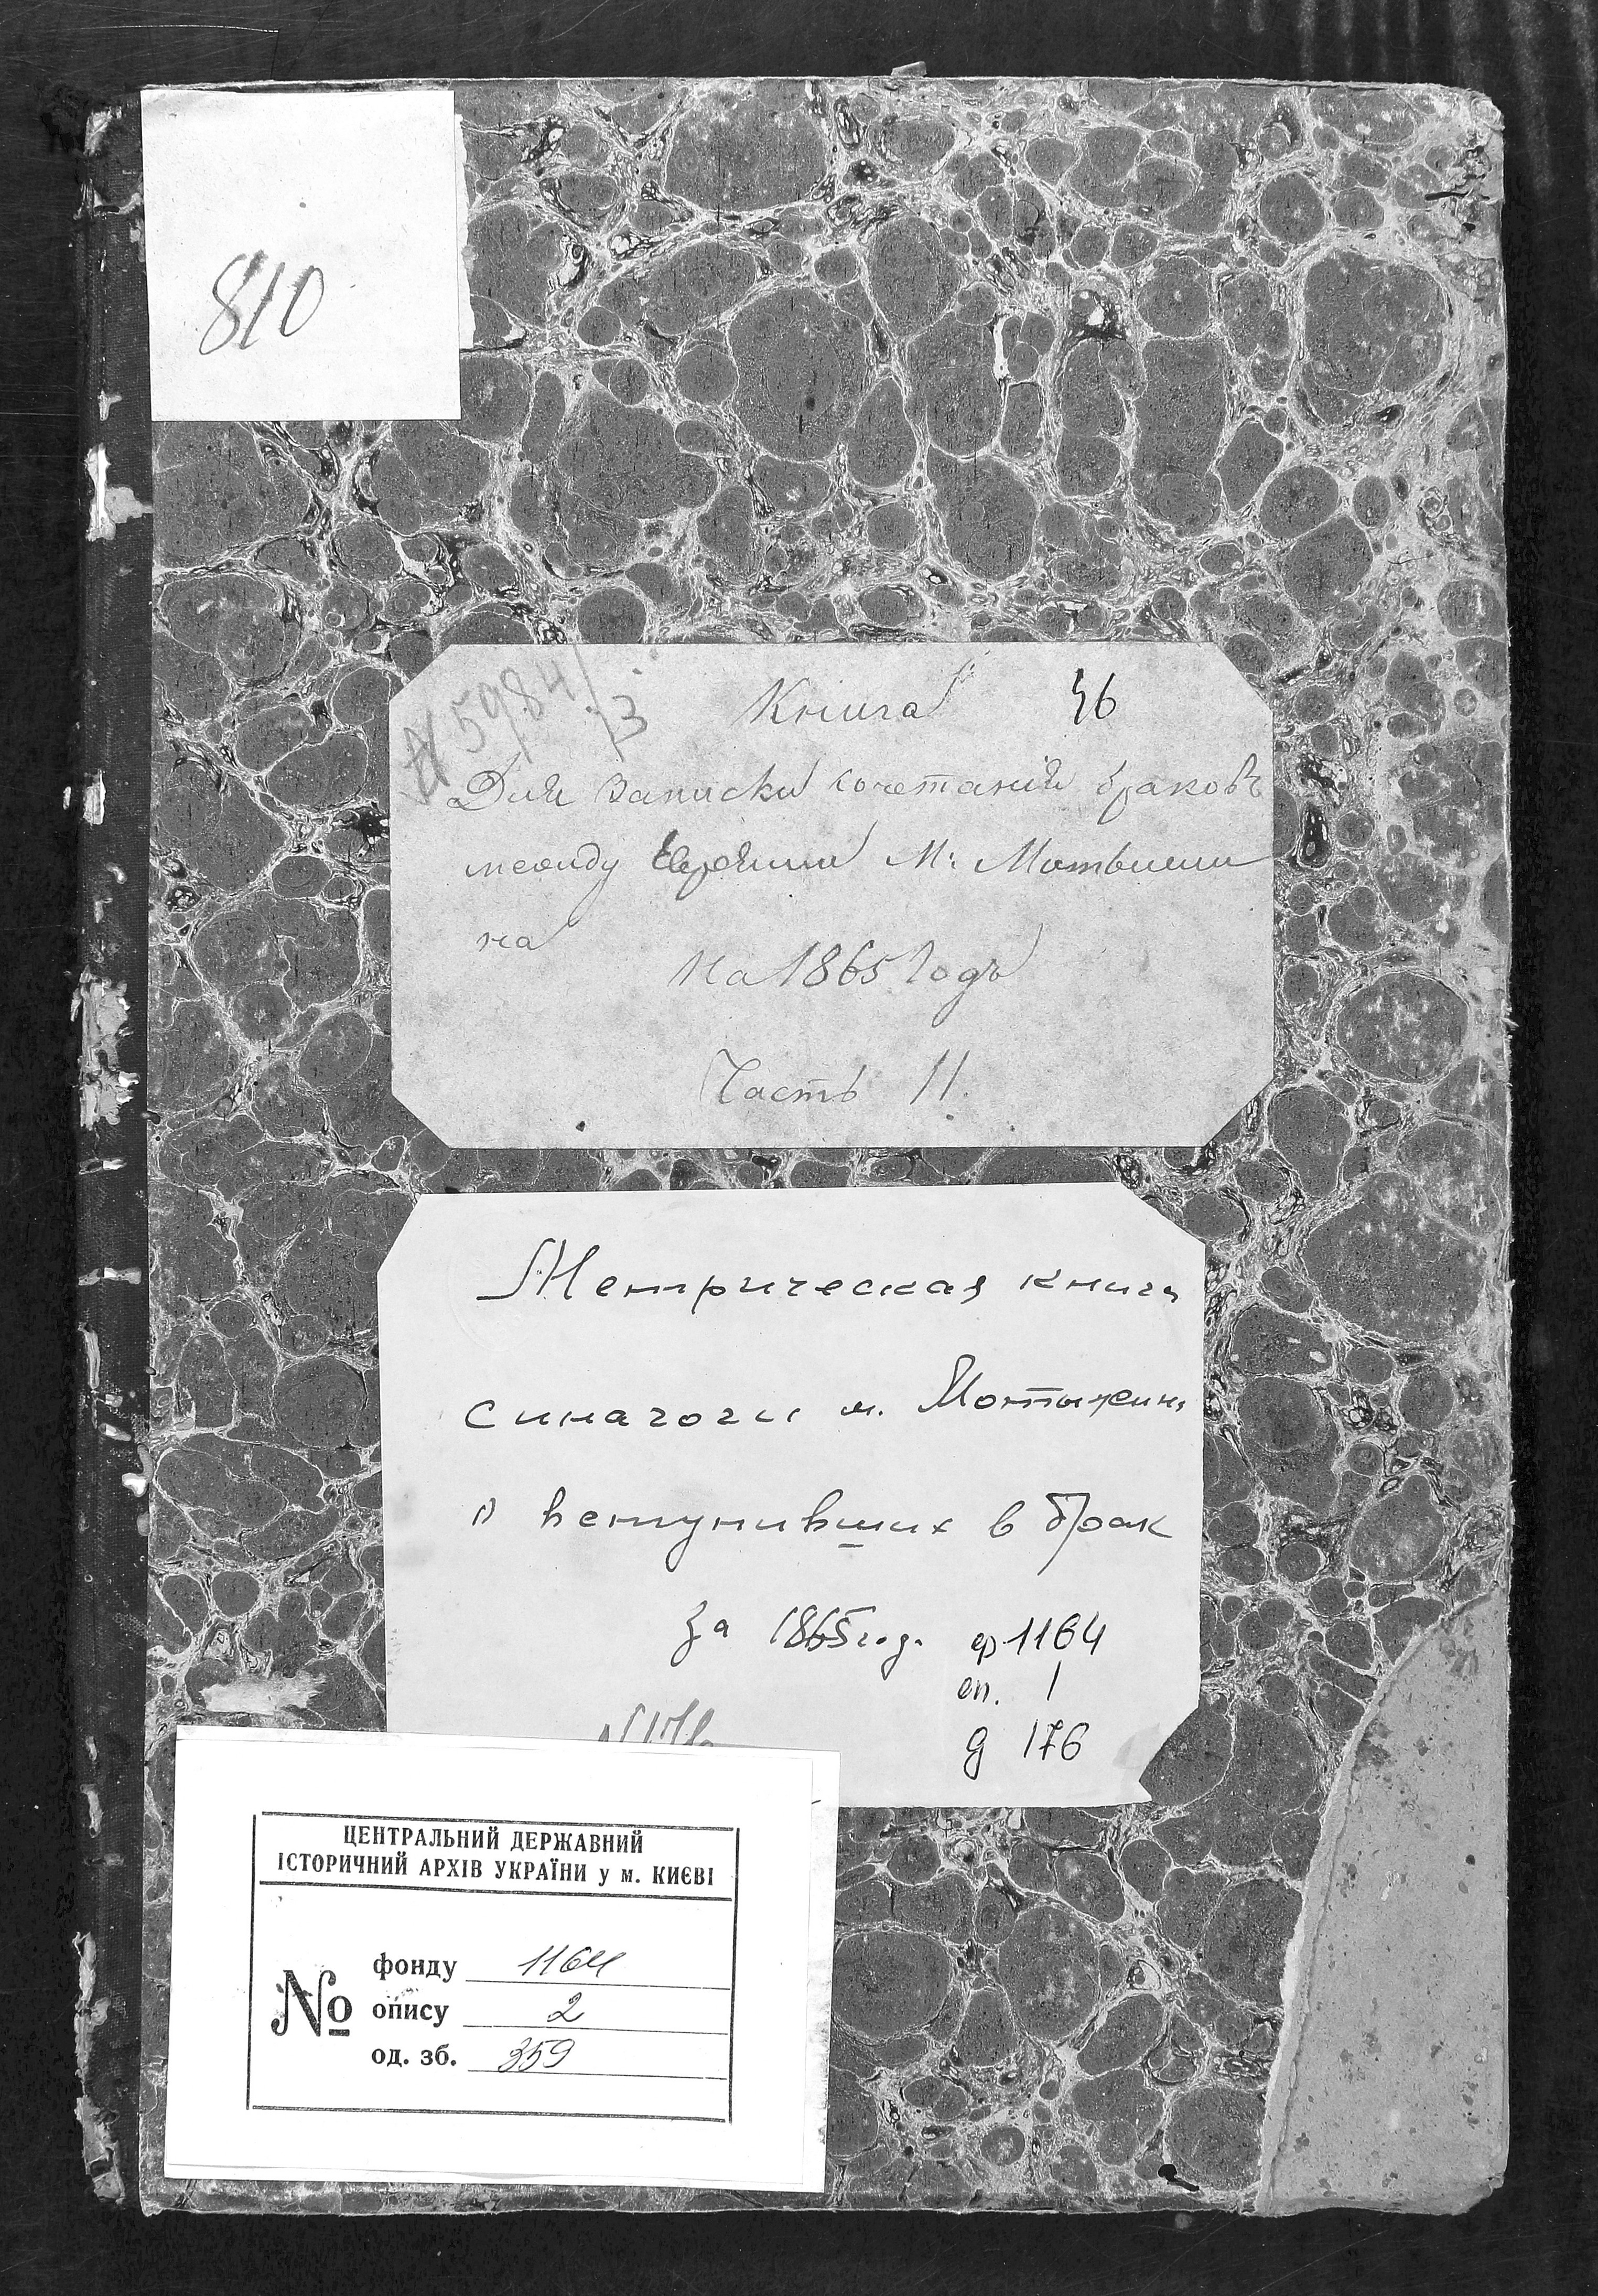 810
№ 5984/3
Книга 46
Для записки сочетанія браковъ
между Евреями М: Мотыжи
на
На 1865 Годъ
Часть II.
Метрическая книга
синагоги м. Мотыжин,
о вступивших в брак
за 1865 год. ф 1164
оп. 1
д 176
ЦЕНТРАЛЬНИЙ ДЕРЖАВНИЙ
ІСТОРИЧНИЙ АРХІВ УКРАЇНИ у м. КИЄВІ
№ фонду 1164
опису 2
од. зб. 359